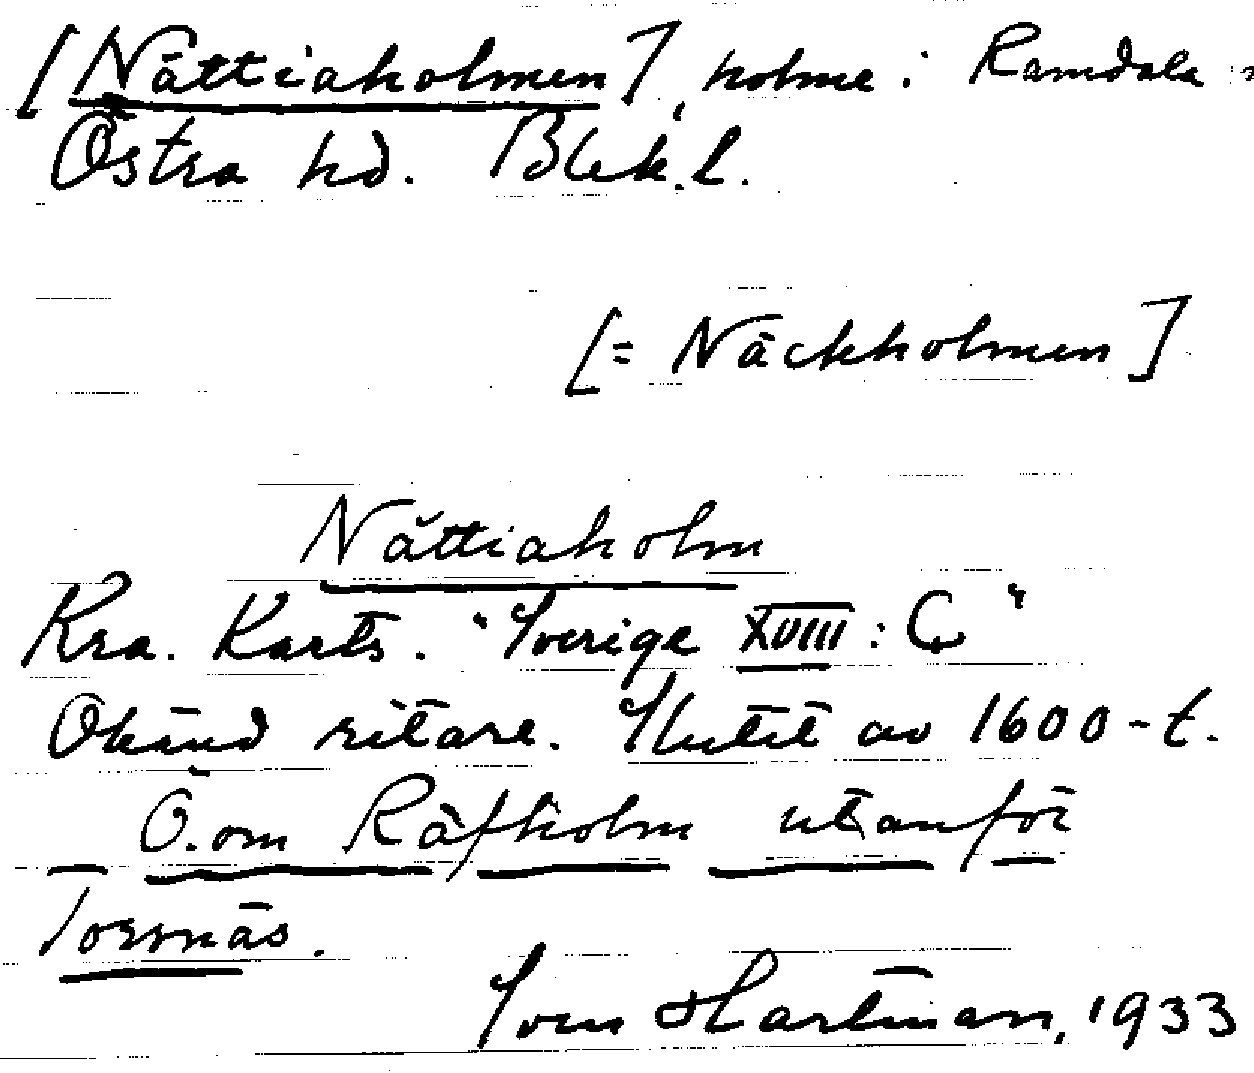 [Nättiaholmen], holme i Ramdala
Östra hd. Blek.l.
[= Näckholmen]
Nättiaholm
Kra. Karts. "Sverige XVIII: C"
Okänd ritare. Slutet av 1600-t.
Ö.om Räfholm utanför
Torsnäs.
Sven Hartman, 1933